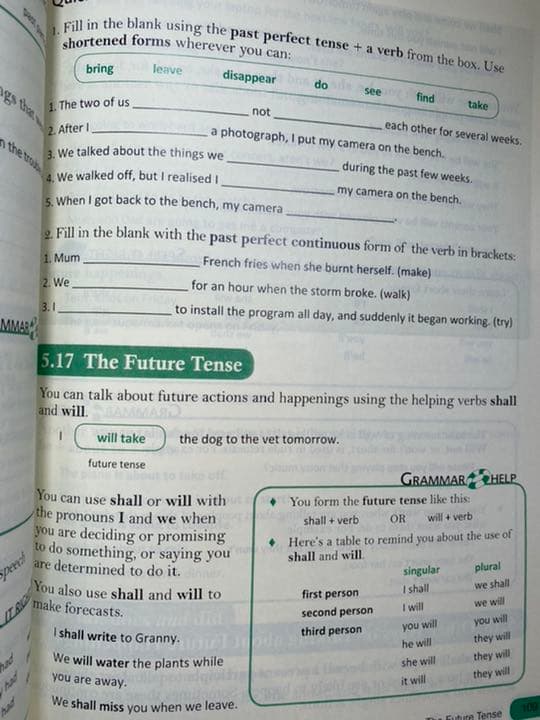 1. Fill in the blank using the past perfect tense + a verb from the box. Use
shortened forms wherever you can:
bring leave disappear do see find take
1. The two of us ____ not ____ each other for several weeks.
2. After I ____ a photograph, I put my camera on the bench.
3. We talked about the things we ____ during the past few weeks.
4. We walked off, but I realised I ____ my camera on the bench.
5. When I got back to the bench, my camera ____.
2. Fill in the blank with the past perfect continuous form of the verb in brackets:
1. Mum ____ French fries when she burnt herself. (make)
2. We ____ for an hour when the storm broke. (walk)
3. I ____ to install the program all day, and suddenly it began working. (try)
5.17 The Future Tense
You can talk about future actions and happenings using the helping verbs shall
and will.
I will take the dog to the vet tomorrow.
future tense
You can use shall or will with
the pronouns I and we when
you are deciding or promising
to do something, or saying you
are determined to do it.
You also use shall and will to
make forecasts.
I shall write to Granny.
We will water the plants while
you are away.
We shall miss you when we leave.
GRAMMAR HELP
♦ You form the future tense like this:
shall + verb OR will + verb
♦ Here's a table to remind you about the use of
shall and will.
singular plural
first person I shall we shall
second person I will we will
third person you will you will
he will they will
she will they will
it will they will
Future Tense 109